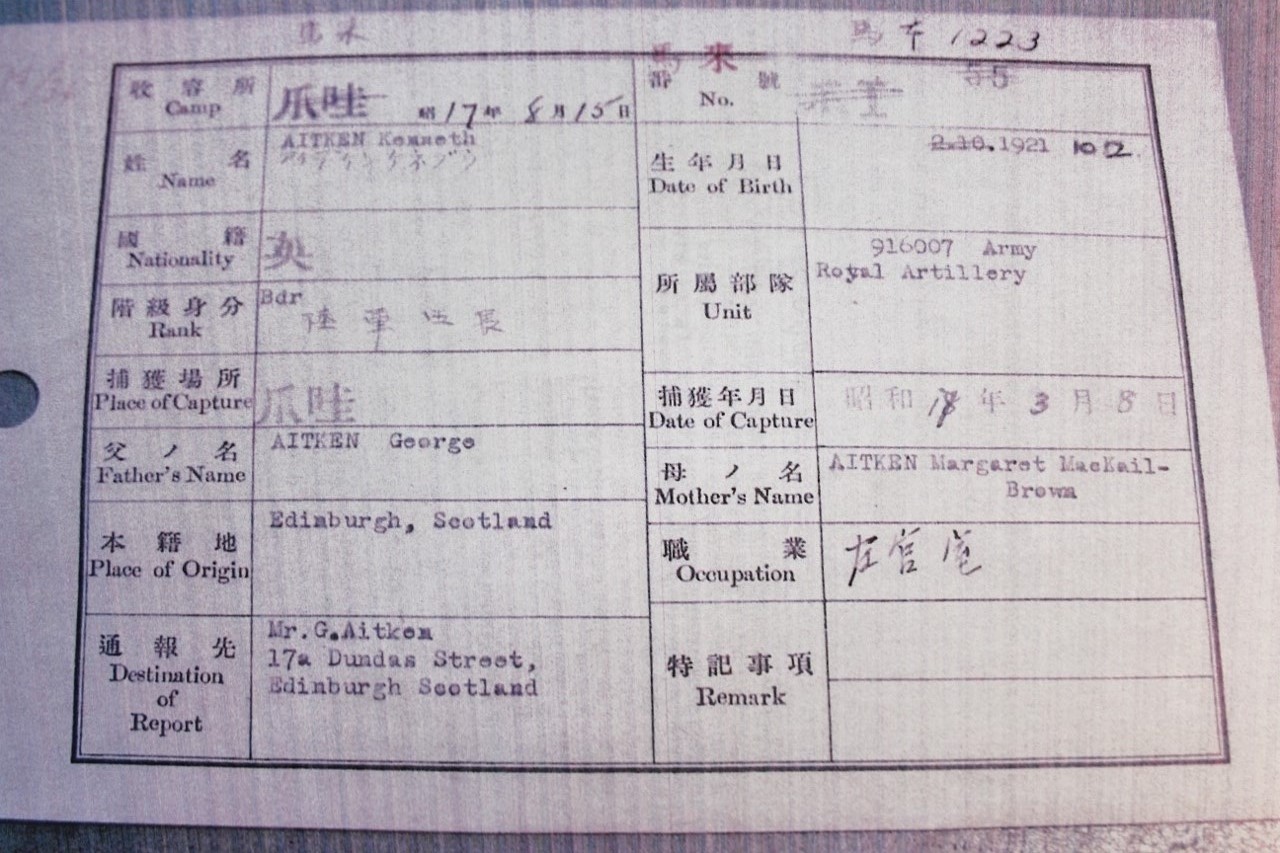 馬來
馬本 1223
馬來
55
收容所
Camp
爪哇
昭17年 8月15日
番號
No.
姓名
Name
AITKEN Kenneth
生年月日
Date of Birth
2.10.1921 10 2
國籍
Nationality
英
所屬部隊
Unit
916007 Army
Royal Artillery
階級身分
Rank
Bdr
陸軍伍長
捕獲場所
Place of Capture
爪哇
捕獲年月日
Date of Capture
昭和 年 3月 8日
父ノ名
Father's Name
AITKEN George
母ノ名
Mother's Name
AITKEN Margaret MacKail-
Brown
本籍地
Place of Origin
Edinburgh, Scotland
職業
Occupation
左官
通報先
Destination
of
Report
Mr.G.Aitken
17a Dundas Street,
Edinburgh Scotland
特記事項
Remark